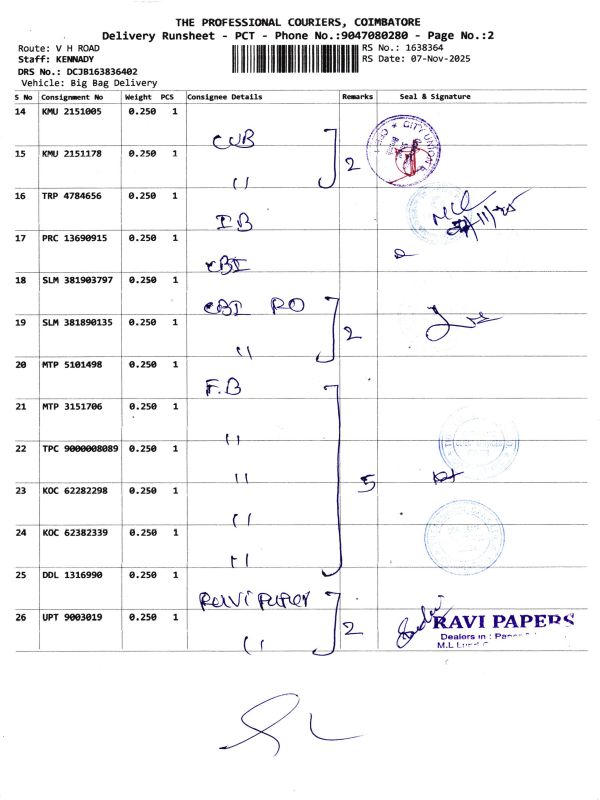 THE PROFESSIONAL COURIERS, COIMBATORE
Delivery Runsheet - PCT - Phone No.:9047080280 - Page No.:2
Route: V H ROAD RS No.: 1638364
Staff: KENNADY RS Date: 07-Nov-2025
DRS No.: DCJB163836402
Vehicle: Big Bag Delivery
S No Consignment No Weight PCS Consignee Details Remarks Seal & Signature
14 KMU 2151005 0.250 1 CUB
15 KMU 2151178 0.250 1 '' 2 CITY UNION
16 TRP 4784656 0.250 1 IB
17 PRC 13690915 0.250 1 CBI
18 SLM 381903797 0.250 1 CBI RO
19 SLM 381890135 0.250 1 '' 2
20 MTP 5101498 0.250 1 F.B
21 MTP 3151706 0.250 1 ''
22 TPC 9000008089 0.250 1 '' 5
23 KOC 62282298 0.250 1 ''
24 KOC 62382339 0.250 1 ''
25 DDL 1316990 0.250 1 Ravi Paper
26 UPT 9003019 0.250 1 '' 2 RAVI PAPERS
Dealers in :
M.L